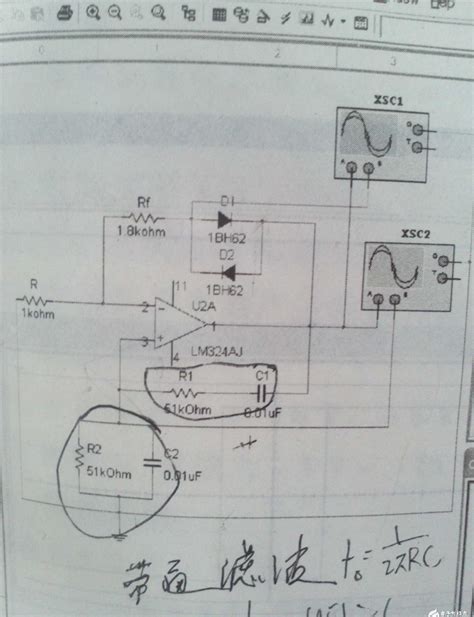 0
1
2
3
XSC1
G
T
A
B
D1
Rf
1.8kohm
1BH62
D2
1BH62
XSC2
G
T
A
B
R
1kohm
11
U2A
2
1
3
4
LM324AJ
R1
C1
51kOhm
0.01uF
R2
51kOhm
C2
0.01uF
滤波 f₀=1/2πRC